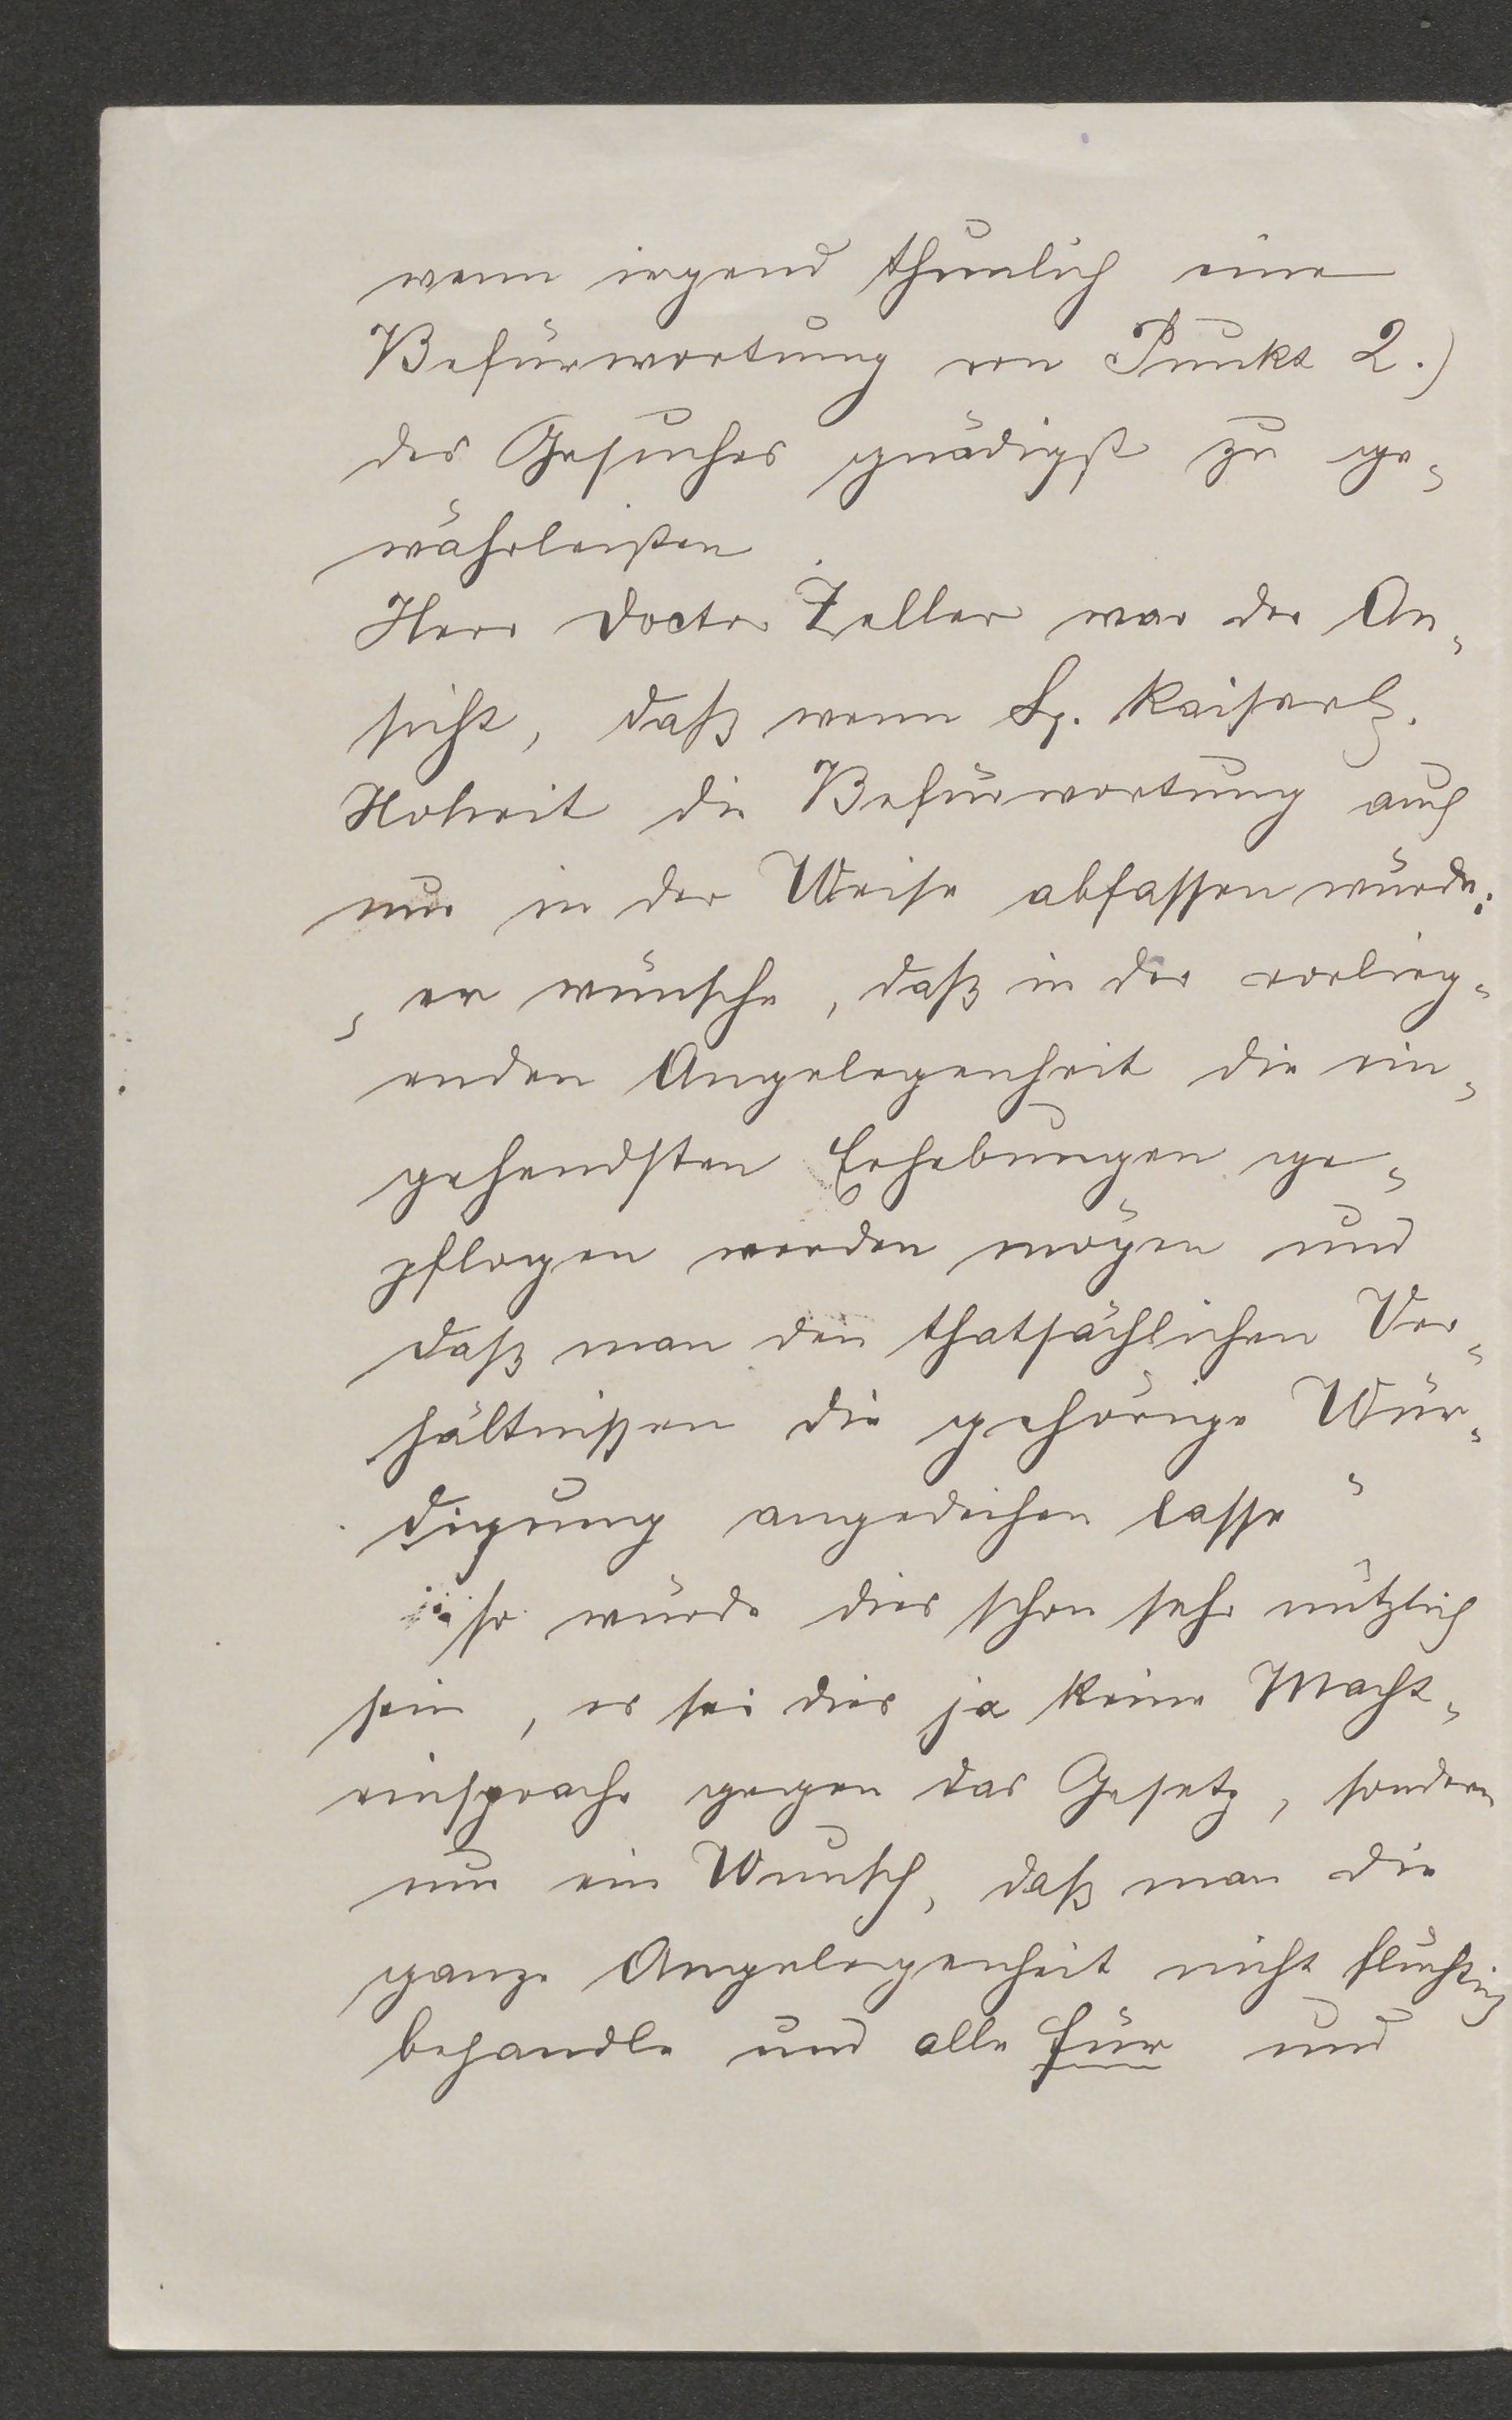 wenn irgend thunlich eine
Befürwortung von Punkt 2.)
des Gesuches gnädigst zu ge-
währleisten.
Herr Doctor Zeller war der An-
sicht, daß wenn Sr. Kaiserl.
Hoheit die Befürwortung auch
nur in der Weise abfassen würde:
„er wünsche, daß in der vorlieg-
enden Angelegenheit die ein-
gehendsten Erhebungen ge-
pflogen werden mögen und
daß man den thatsächlichen Ver-
hältnissen die gehörige Wür-
digung angedeihen lasse“
so würde dies schon sehr nützlich
sein, es sei dies ja keine Macht-
einsprache gegen das Gesetz, sondern
nur ein Wunsch, daß man die
ganze Angelegenheit nicht flüchtig
behandle und alle für und